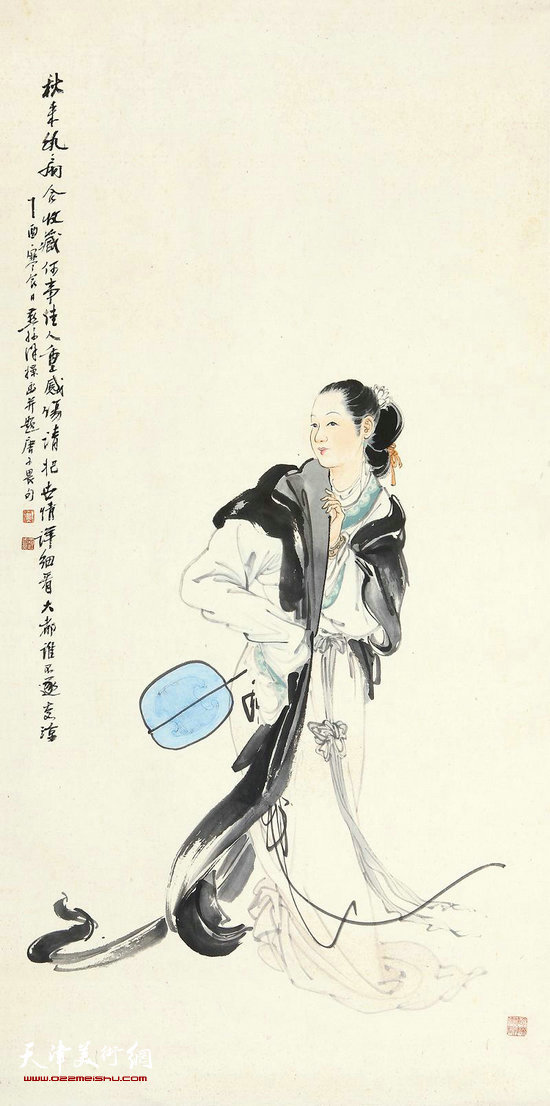 秋来纨扇合收藏何事佳人重感傷請把世情详细看大都谁不逐炎凉
丁酉寒食日
画并题唐子畏句
天津美術網
www.022meishu.com